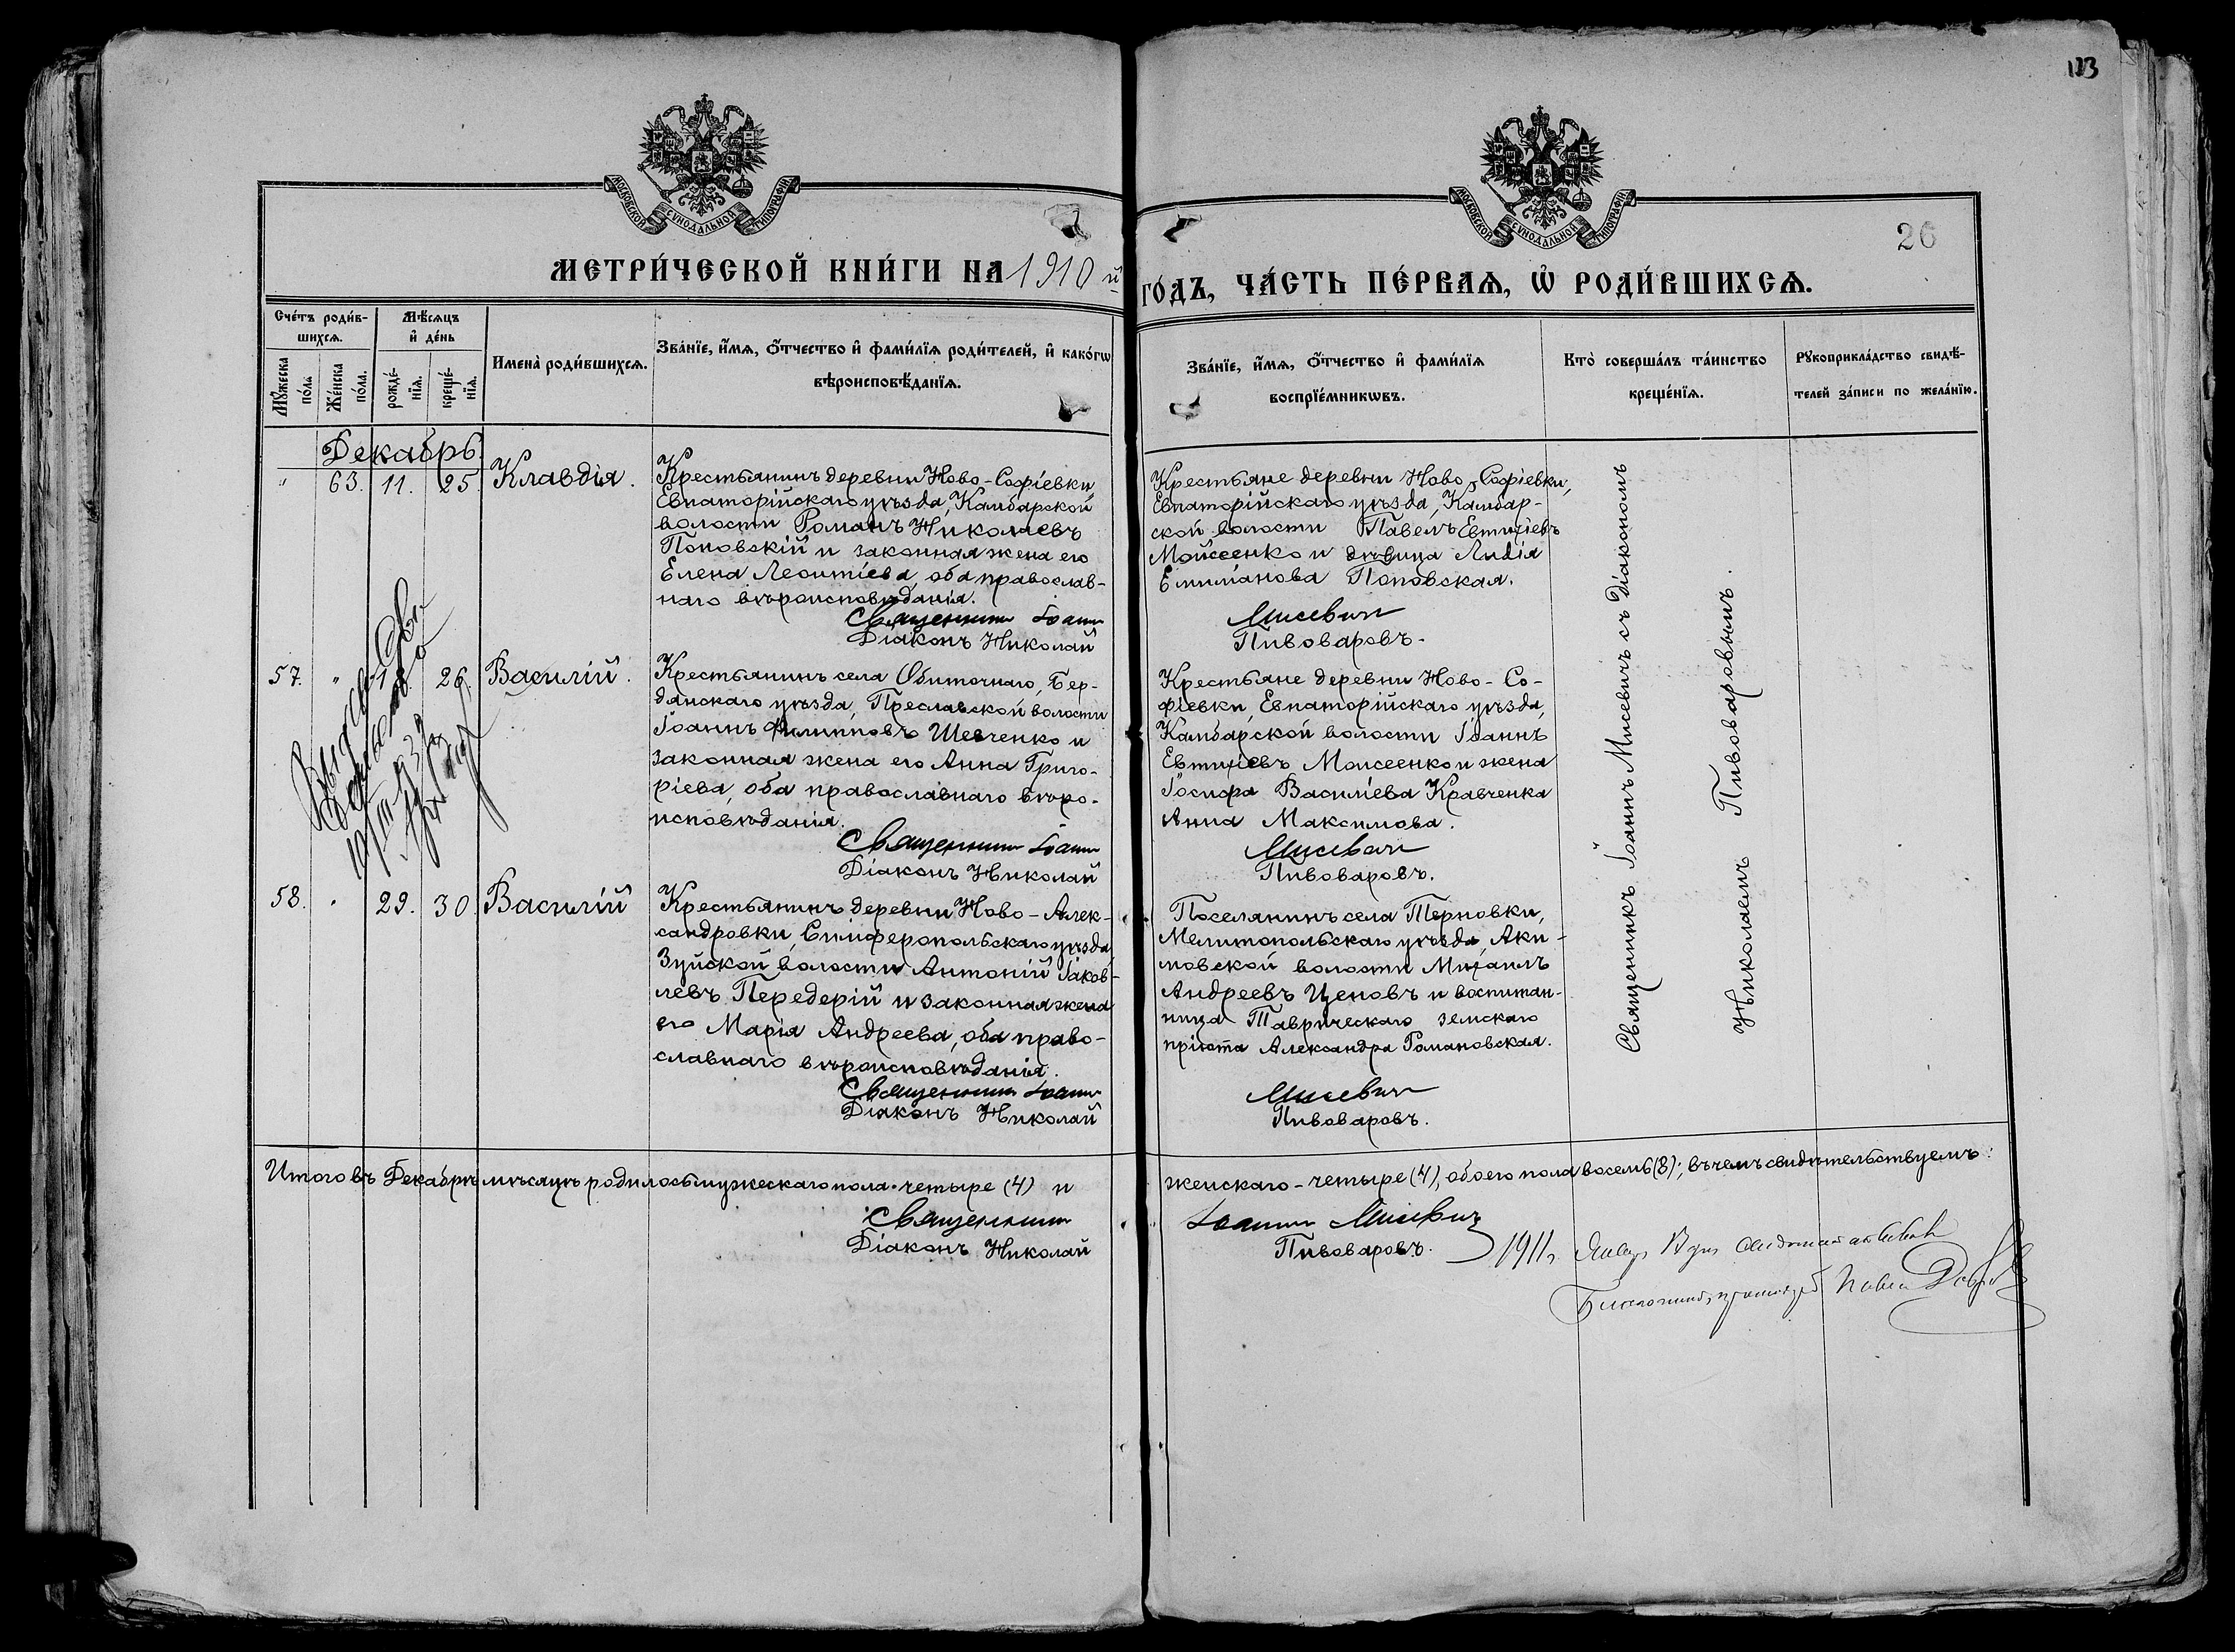 113
МОСКОВСКОЙ СѴНОДАЛЬНОЙ ТИПОГРАФІИ
МОСКОВСКОЙ СѴНОДАЛЬНОЙ ТИПОГРАФІИ
26
МЕТРИ́ЧЕСКОЙ КНИ́ГИ НА 1910 й
ГО́ДЪ, ЧА́СТЬ ПЕ́РВАѦ, Ѡ҆ РОДИ́ВШИХСѦ.
Сче́тъ роди́в-
шихсѧ.
Мꙋжеска по́ла.
Же́нска по́ла.
Мѣ́сѧцъ
и҆ де́нь
рожде́-
нїѧ.
креще́-
нїѧ.
Имена̀ роди́вшихсѧ.
Зва́нїе, и҆́мѧ, ѻ҆́тчество и҆ фами́лїѧ роди́телей, и҆ како́гѡ
вѣроисповѣ́данїѧ.
Зва́нїе, и҆́мѧ, ѻ҆́тчество и҆ фами́лїѧ
воспрїе́мникѡвъ.
Кто̀ соверша́лъ та́инство
креще́нїѧ.
Рꙋкоприкла́дство свидѣ́-
телей за́писи по жела́нїю.
Декабрь.
" 63. 11. 25. Клавдія.
Крестьянинъ деревни Ново-Софіевки
Евпаторійскаго уѣзда, Камбарской
волости Романъ Николаевъ
Поповскій и законная жена его
Елена Леонтіева, оба православ-
наго вѣроисповѣданія.
Священникъ Іоаннъ
Діаконъ Николай
Крестьяне деревни Ново-Софіевки,
Евпаторійскаго уѣзда, Камбар-
ской волости Павелъ Евтихіевъ
Мойсеенко и дѣвица Лидія
Емиліанова Поповская.
Мисевичъ
Пивоваровъ.
57. " 26. Василій.
Крестьянинъ села Обиточнаго, Бер-
дянскаго уѣзда, Преславской волости
Іоаннъ Филипповъ Шевченко и
законная жена его Анна Григо-
ріева, оба православнаго вѣро-
исповѣданія.
Священникъ Іоаннъ
Діаконъ Николай
Крестьяне деревни Ново-Со-
фіевки, Евпаторійскаго уѣзда,
Камбарской волости Іоаннъ
Евтихіевъ Моисеенко и жена
Іосифа Василіева Кравченка
Анна Максимова.
Мисевичъ
Пивоваровъ.
58. " 29. 30. Василій
Крестьянинъ деревни Ново-Алек-
сандровки, Симферопольскаго уѣзда,
Зуйской волости Антоній Іаков-
левъ Передерій и законная жена
его Марія Андреева, оба право-
славнаго вѣроисповѣданія.
Священникъ Іоаннъ
Діаконъ Николай
Поселянинъ села Терновки,
Мелитопольскаго уѣзда, Аки-
мовской волости Михаилъ
Андреевъ Ценовъ и воспитан-
ница Таврическаго земскаго
пріюта Александра Романовская.
Мисевичъ
Пивоваровъ.
Священникъ Іоаннъ Мисевичъ съ Діакономъ
Николаемъ Пивоваровымъ.
Итого въ Декабрѣ мѣсяцѣ родилось мужескаго пола - четыре (4) и
женскаго - четыре (4), обоего пола восемь (8); въ чемъ свидѣтельствуемъ:
Священникъ Іоаннъ Мисевичъ
Діаконъ Николай Пивоваровъ.
1911 г.
Благочинный, протоіерей Павел